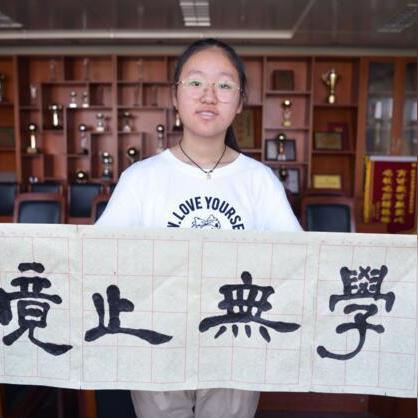 學無止境
LOVE YOURSE